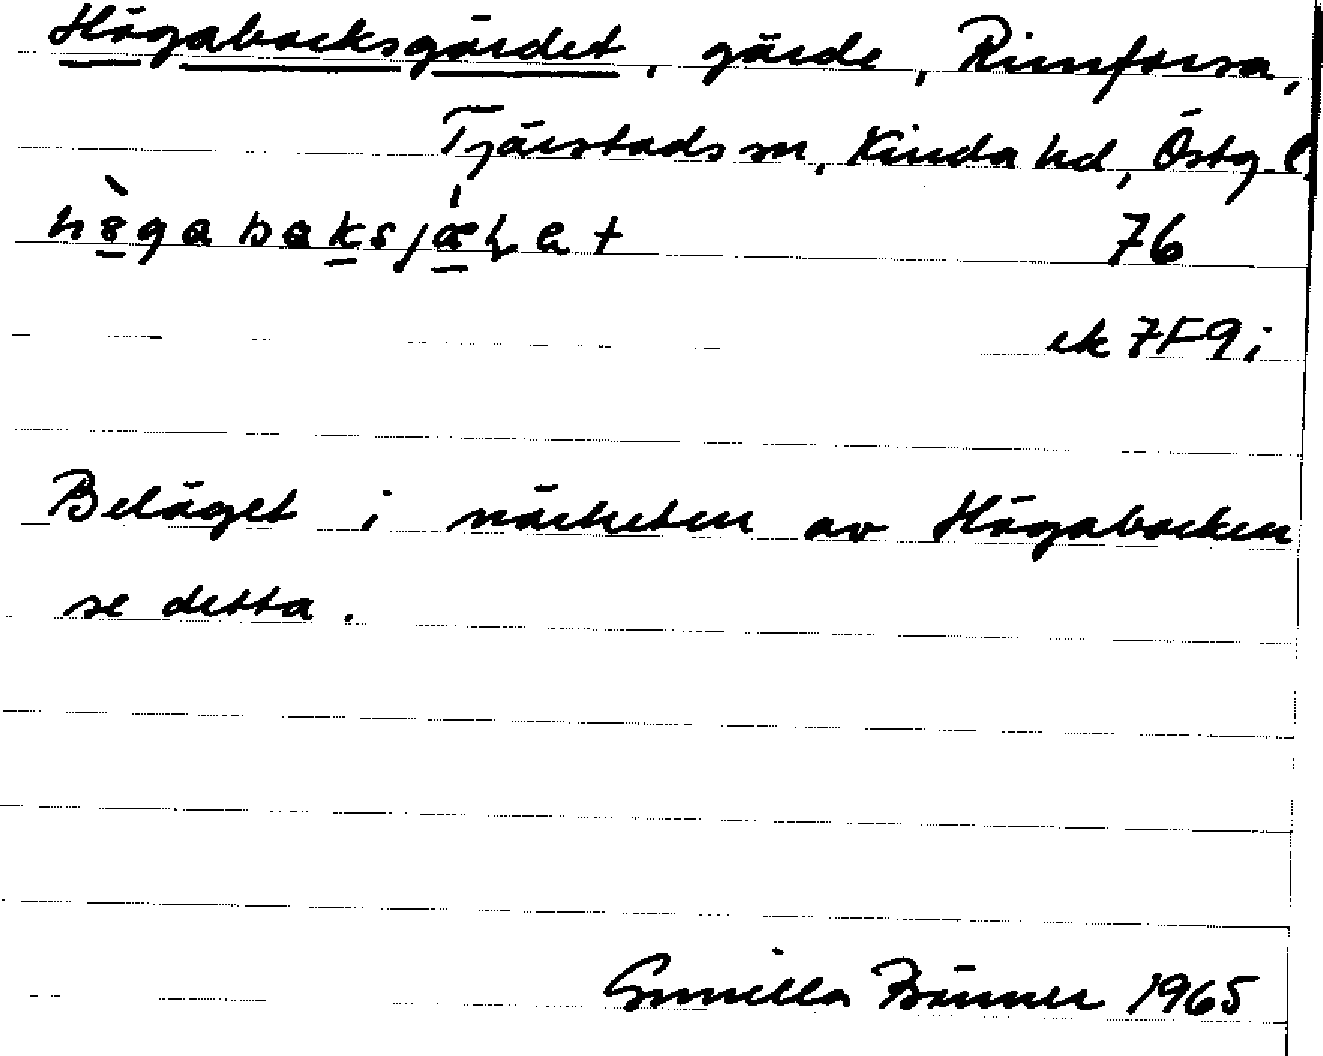 Högabocksgärdet, gärde, Rimforsa,
Tjärstads sn, Kinda hd, Östg. l.
76
ek 7F9i
Beläget i närheten av Högabocken
se detta.
Gunilla 1965